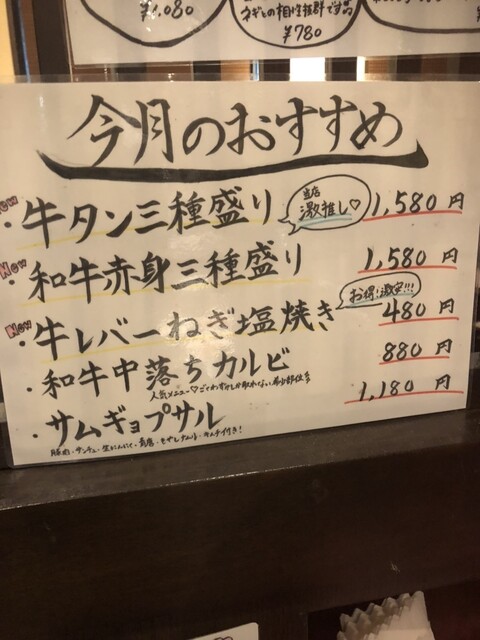 ¥1,080
ネギとの相性抜群です
¥780
今月のおすすめ
New
・牛タン三種盛り 当店激推し♡ 1,580円
New
・和牛赤身三種盛り 1,580円
New
・牛レバーねぎ塩焼き お得!激安!!! 480円
・和牛中落ちカルビ 880円
人気メニュー♡ごくわずかしか取れない希少部位
・サムギョプサル 1,180円
豚肉・サンチュ・生にんにく・青唐・もやしナムル・キムチ付き!